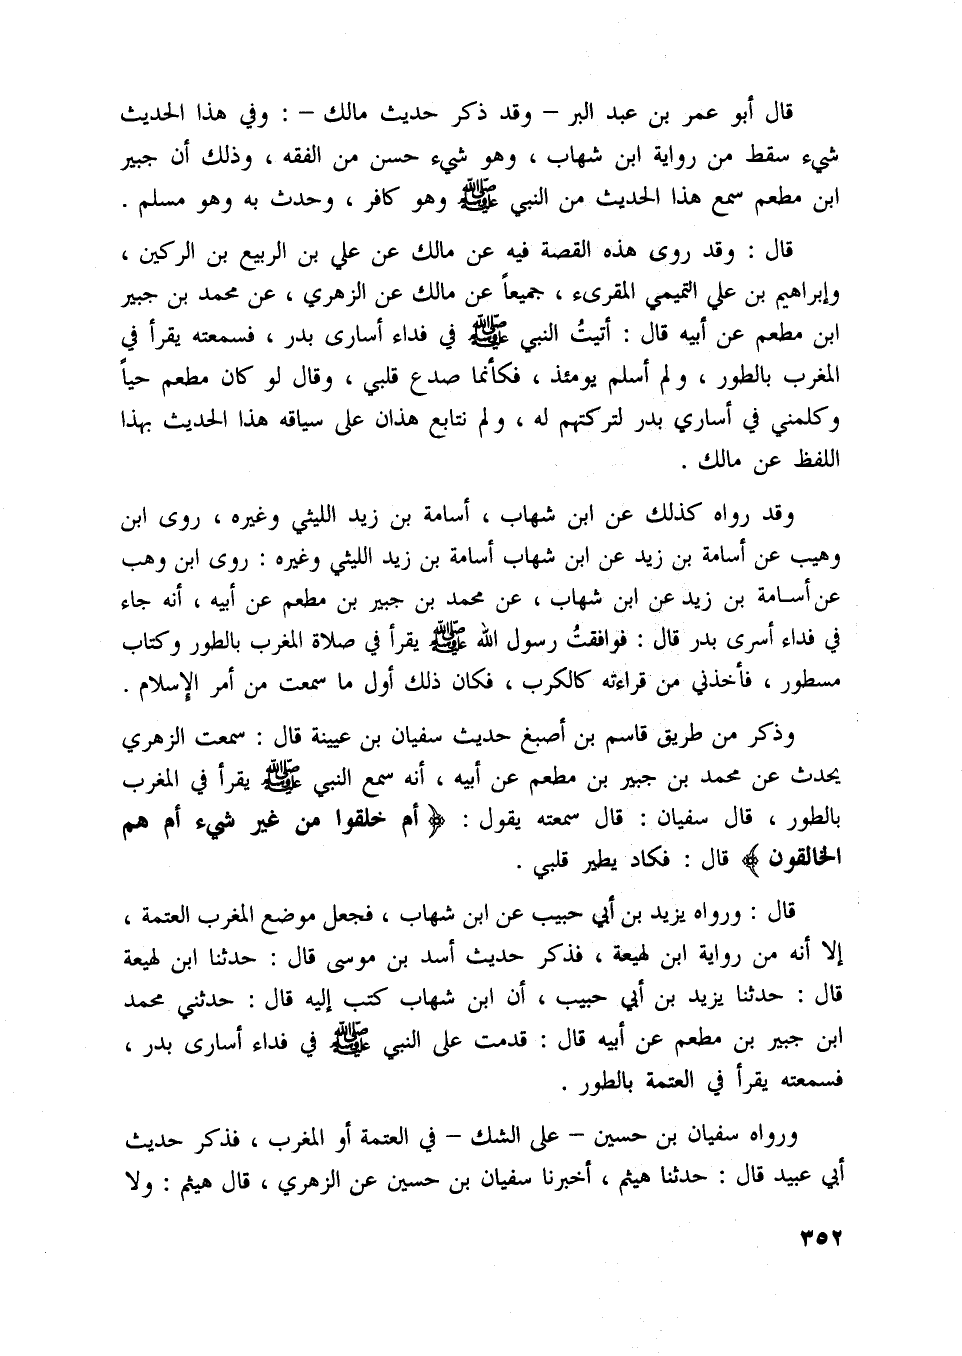 قال أبو عمر بن عبد البر – وقد ذكر حديث مالك – : وفي هذا الحديث
شيء سقط من رواية ابن شهاب ، وهو شيء حسن من الفقه ، وذلك أن جبير
ابن مطعم سمع هذا الحديث من النبي ﷺ وهو كافر ، وحدث به وهو مسلم .
قال : وقد روى هذه القصة فيه عن مالك عن علي بن الربيع بن الركين ،
وإبراهيم بن علي التميمي المقرىء ، جميعاً عن مالك عن الزهري ، عن محمد بن جبير
ابن مطعم عن أبيه قال : أتيتُ النبي ﷺ في فداء أسارى بدر ، فسمعته يقرأ في
المغرب بالطور ، ولم أسلم يومئذ ، فكأنما صدع قلبي ، وقال لو كان مطعم حياً
وكلمني في أساري بدر لتركتهم له ، ولم نتابع هذان على سياقه هذا الحديث بهذا
اللفظ عن مالك .
وقد رواه كذلك عن ابن شهاب ، أسامة بن زيد الليثي وغيره ، روى ابن
وهيب عن أسامة بن زيد عن ابن شهاب أسامة بن زيد الليثي وغيره : روى ابن وهب
عن أسامة بن زيد عن ابن شهاب ، عن محمد بن جبير بن مطعم عن أبيه ، أنه جاء
في فداء أسرى بدر قال : فوافقتُ رسول الله ﷺ يقرأ في صلاة المغرب بالطور وكتاب
مسطور ، فأخذني من قراءته كالكرب ، فكان ذلك أول ما سمعت من أمر الإسلام .
وذكر من طريق قاسم بن أصبغ حديث سفيان بن عيينة قال : سمعت الزهري
يحدث عن محمد بن جبير بن مطعم عن أبيه ، أنه سمع النبي ﷺ يقرأ في المغرب
بالطور ، قال سفيان : قال سمعته يقول : ﴿ أم خلقوا من غير شيء أم هم
الخالقون ﴾ قال : فكاد يطير قلبي .
قال : ورواه يزيد بن أبي حبيب عن ابن شهاب ، فجعل موضع المغرب العتمة ،
إلا أنه من رواية ابن لهيعة ، فذكر حديث أسد بن موسى قال : حدثنا ابن لهيعة
قال : حدثنا يزيد بن أبي حبيب ، أن ابن شهاب كتب إليه قال : حدثني محمد
ابن جبير بن مطعم عن أبيه قال : قدمت على النبي ﷺ في فداء أسارى بدر ،
فسمعته يقرأ في العتمة بالطور .
ورواه سفيان بن حسين – على الشك – في العتمة أو المغرب ، فذكر حديث
أبي عبيد قال : حدثنا هيثم ، أخبرنا سفيان بن حسين عن الزهري ، قال هيثم : ولا
٣٥٢